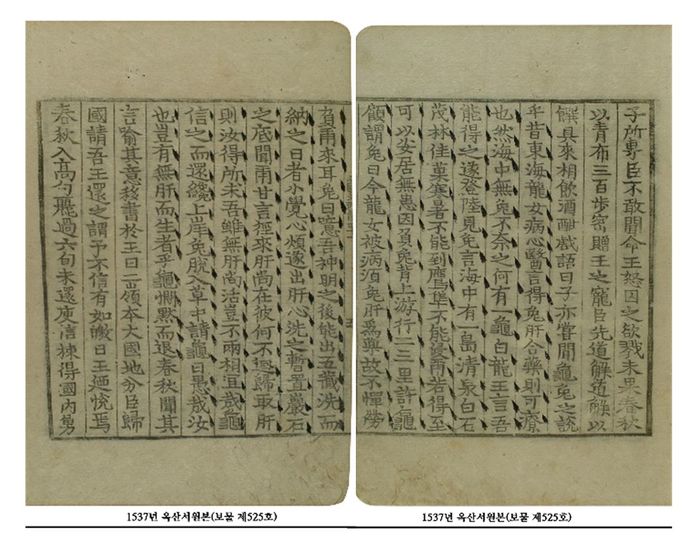 子所專臣不敢聞命王怒囚之欲戮未果春秋
以青布三百步密贈王之寵臣先道解道解以
饌具來相飮酒酣戲語曰子亦嘗聞龜兎之說
乎昔東海龍女病心醫言得兎肝合藥則可療
也然海中無兎不奈之何有一龜白龍王言吾
能得之遂登陸見兎言海中有一島清泉白石
茂林佳菓寒暑不能到鷹隼不能侵爾若得至
可以安居無患因負兎背上游行二三里許龜
顧謂兎曰今龍女被病須兎肝爲藥故不憚勞
負爾來耳兎曰噫吾神明之後能出五藏洗而
納之日者小覺心煩遂出肝心洗之暫置巖石
之底聞爾甘言徑來肝尚在彼何不廻歸取肝
則汝得所求吾雖無肝尚活豈不兩相宜哉龜
信之而還纔上岸兎脫入草中謂龜曰愚哉汝
也豈有無肝而生者乎龜憫默而退春秋聞其
言喻其意移書於王曰二嶺本大國地分臣歸
國請吾王還之謂予不信有如皦日王廼悅焉
春秋入高句麗過六旬未還庾信揀得國內勇
1537년 옥산서원본(보물 제525호)
1537년 옥산서원본(보물 제525호)